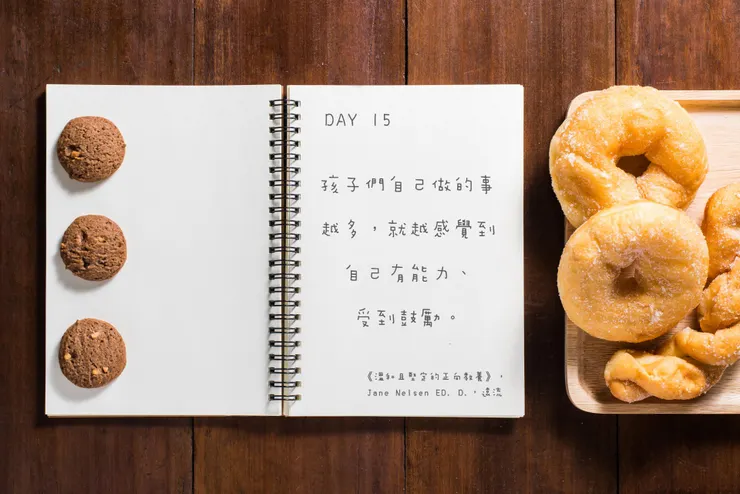 DAY 15
孩子們自己做的事
越多，就越感覺到
自己有能力、
受到鼓勵。
《溫和且堅定的正向教養》，
Jane Nelsen ED. D.，遠流